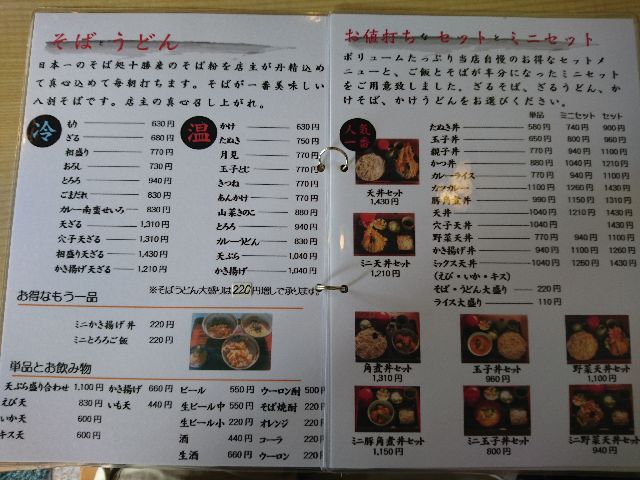 そばとうどん
日本一のそば処十勝産のそば粉を店主が丹精込め
て真心込めて毎朝打ちます。そばが一番美味しい
八割そばです。店主の真心召し上がれ。
冷
もり 630円
ざる 680円
相盛り 770円
おろし 730円
とろろ 940円
ごまだれ 830円
カレー南蛮せいろ 830円
天ざる 1,310円
穴子天ざる 1,310円
相盛り天ざる 1,430円
かき揚げ天ざる 1,210円
温
かけ 630円
たぬき 750円
月見 770円
玉子とじ 770円
きつね 770円
あんかけ 770円
山菜きのこ 880円
とろろ 940円
カレーうどん 830円
天ぷら 1,040円
かき揚げ 1,040円
※そばうどん大盛りは220円増しで承ります。
お得なもう一品
ミニかき揚げ丼 220円
ミニとろろご飯 220円
単品とお飲み物
天ぷら盛り合わせ 1,100円
えび天 830円
いか天 600円
キス天 600円
かき揚げ 660円
いも天 440円
ビール 550円
生ビール中 550円
生ビール小 220円
酒 440円
生酒 660円
ウーロン酎 500円
そば焼酎 220円
オレンジ 220円
コーラ 220円
ウーロン 220円
お値打ちなセットとミニセット
ボリュームたっぷり当店自慢のお得なセットメ
ニューと、ご飯とそばが半分になったミニセット
をご用意致しました。ざるそば、ざるうどん、か
けそば、かけうどんをお選びください。
人気一番
単品 ミニセット セット
たぬき丼 580円 740円 900円
玉子丼 650円 800円 960円
親子丼 770円 940円 1100円
かつ丼 880円 1040円 1210円
カレーライス 770円 940円 1100円
カツカレー 1100円 1260円 1430円
豚角煮丼 990円 1150円 1310円
天丼 1040円 1210円 1430円
穴子天丼 1040円 1430円
野菜天丼 770円 940円 1100円
かき揚げ丼 940円 1100円 1260円
ミックス天丼 1040円 1210円 1430円
(えび・いか・キス)
そば・うどん大盛り 220円
ライス大盛り 110円
天丼セット
1,430円
ミニ天丼セット
1,210円
角煮丼セット
1,310円
玉子丼セット
960円
野菜天丼セット
1,100円
ミニ豚角煮丼セット
1,150円
ミニ玉子丼セット
800円
ミニ野菜天丼セット
940円